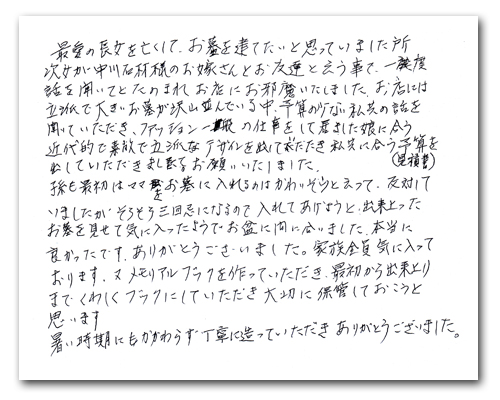 最愛の長女を亡くして、お墓を建てたいと思っていました所
次女が中川石材様のお嫁さんとお友達と云う事で、一度
話を聞いてとたのまれ お店にお邪魔いたしました。お店には
立派で大きいお墓が沢山並んでいる中、予算の少ない私共の話を
聞いていただき、ファッション一般の仕事をして居ました娘に合う
近代的で素敵で立派なデザインを出していただき私共に合う予算を
(見積書)
出していただきましたお願いいたしました。
孫も最初はママをお墓に入れるのはかわいそうと云って、反対して
いましたがそろそろ三回忌になるので入れてあげようと、出来上った
お墓を見せて気に入ったようでお盆に間に合いました。本当に
良かったです。ありがとうございました。家族全員気に入って
おります。又メモリアルブックを作っていただき、最初から出来上り
までくわしくブックにしていただき大切に保管しておこうと
思います
暑い時期にもかかわらず丁寧に造っていただきありがとうございました。